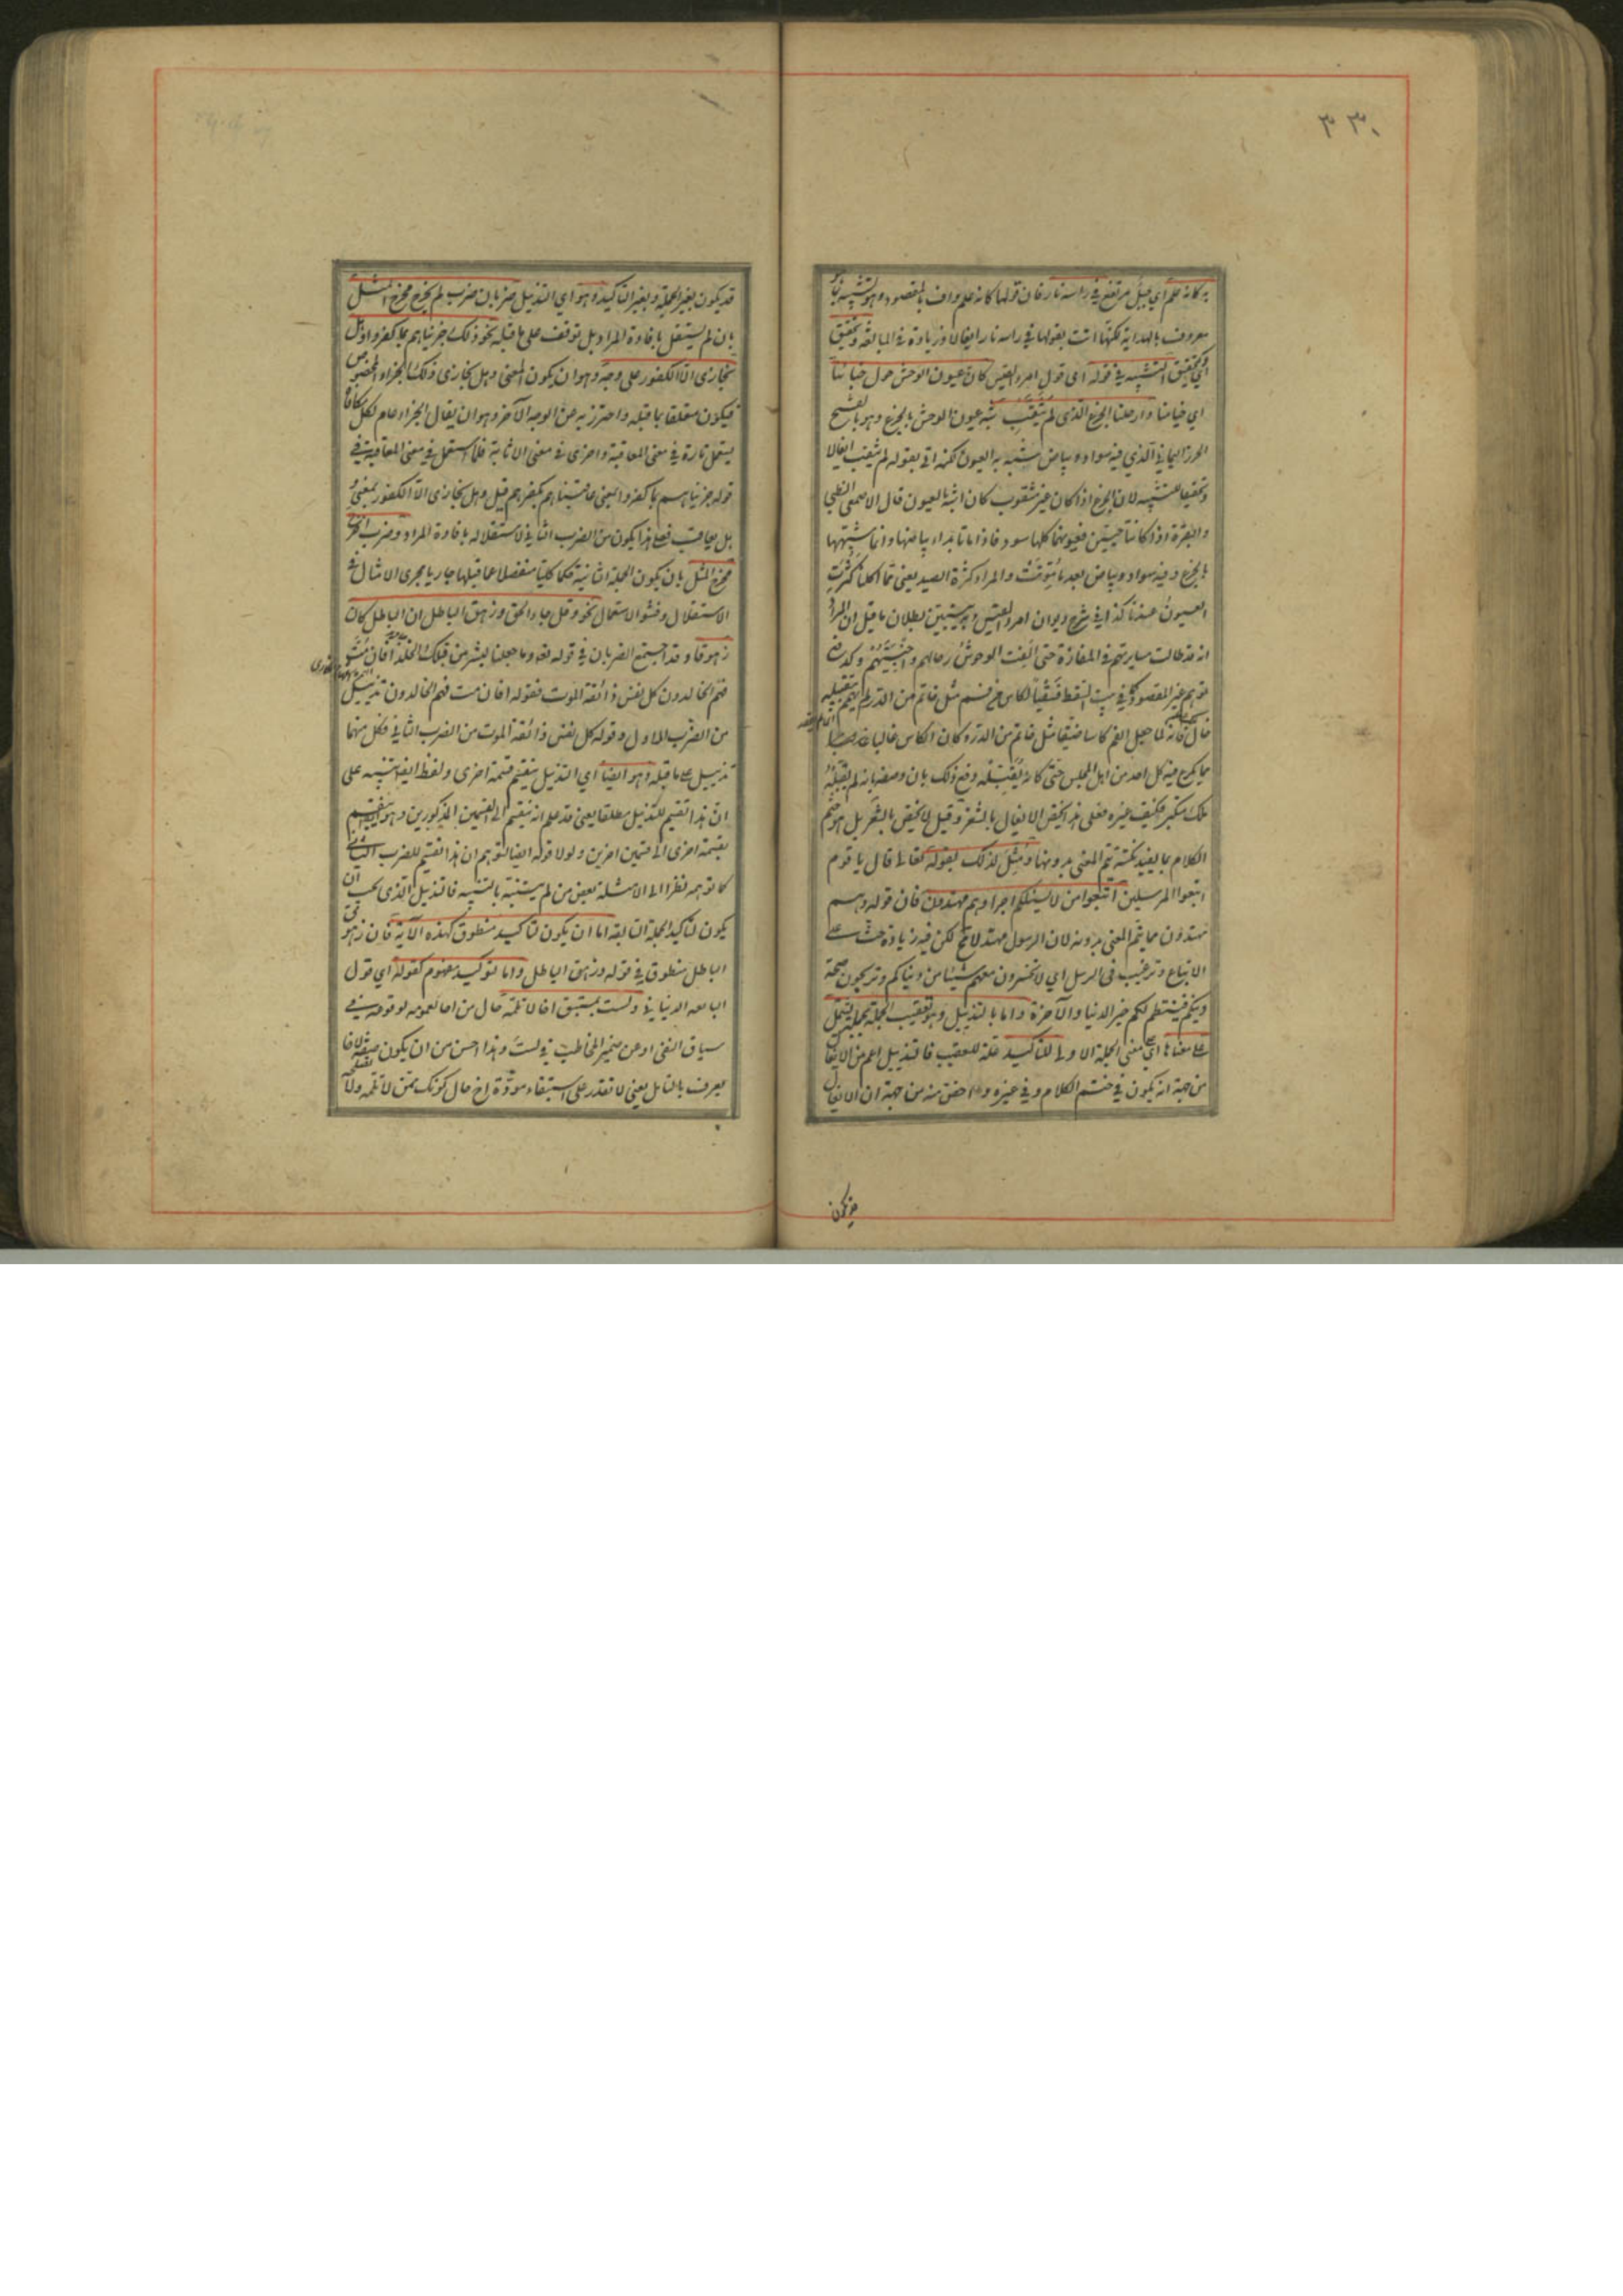 ۳۳۰
به كانه علم اي جبل مرتفع في راسه نار فان قولها كانه علم واف بالمقصود وهو التشبيه بما
معروف بالهداية لكنها اتت بقولها في راسه نار ايغالا وزيادة في المبالغة وتحقيق
اي تحقيق التشبيه في قوله اي قول امرء القيس كان عيون الوحش حول خبائنا
اي خيامنا وارحلنا الجزع الذي لم يثقب شبه عيون الوحش بالجزع وهو بالفتح
الخرز اليماني الذي فيه سواد وبياض شبه به العيون لكنه اتى بقوله لم يثقب ايغالا
وتحقيقا للتشبيه لان الجزع اذا كان غير مثقوب كان اشبه بالعيون قال الاصمعي الظبي
والبقرة اذا كانتا حيتين فعيونهما كلها سود فاذا ماتا بدا بياضها وانما شبهها
بالجزع وفيه سواد وبياض بعد ما موتت والمراد كثرة الصيد يعني مما اكلنا كثرت
العيون عندنا كذا في شرح ديوان امرء القيس وبه يتبين بطلان ما قيل ان المراد
انه قد طالت مسايرتهم في المفازة حتى الفت الوحوش رحالهم واخبيتهم وكدفع
توهم غير المقصود في بيت السقط فسقيا لكاس من فم مثل خاتم من الدر لم يهمم بتقبيله
خال فانه لما جعل الفم كاسا ضيقا مثل خاتم من الدر وكان الكاس غالبا
مما يكرع فيه كل احد من اهل المجلس حتى كانه يقبله دفع ذلك بان وصفه بانه لم يقبله
ملك متكبر فكيف غيره فعلى هذا يختص الايغال بالشعر وقيل لا يختص بالشعر بل هو ختم
الكلام بما يفيد نكتة يتم المعنى بدونها ومثل لذلك بقوله تعالى قال يا قوم
اتبعوا المرسلين اتبعوا من لا يسئلكم اجرا وهم مهتدون فان قوله وهم
مهتدون مما يتم المعنى بدونه لان الرسول مهتد لا مح لكن فيه زيادة حث على
الاتباع وترغيب في الرسل اي لا تخسرون معهم شيئا من دنياكم وتربحون صحة
دينكم فينتظم لكم خير الدنيا والآخرة واما بالتذييل وهو تعقيب الجملة بجملة تشتمل
على معناها اي معنى الجملة الاولى للتاكيد علة للتعقيب فالتذييل اعم من الايغال
من جهة انه يكون في ختم الكلام وفي غيره واخص منه من جهة ان الايغال
قد يكون بغير الجملة وبغير التاكيد وهو اي التذييل ضربان ضرب لم يخرج مخرج المثل
بان لم يستقل بافادة المراد بل توقف على ما قبله نحو ذلك جزيناهم بما كفروا وهل
نجازي الا الكفور على وجه وهو ان يكون المعنى وهل نجازي ذلك الجزاء المخصوص
فيكون متعلقا بما قبله واحترز به عن الوجه الآخر وهو ان يقال الجزاء عام لكل مكافاة
يستعمل تارة في معنى المعاقبة واخرى في معنى الاثابة فلما استعمل في معنى المعاقبة في
قوله جزيناهم بما كفروا بمعنى عاقبناهم بكفرهم قيل وهل نجازي الا الكفور بمعنى و
هل يعاقب فعلى هذا يكون من الضرب الثاني لاستقلاله بافادة المراد وضرب اخرج
مخرج المثل بان يكون الجملة الثانية حكما كليا منفصلا عما قبلها جاريا مجرى الامثال في
الاستقلال وفشو الاستعمال نحو وقل جاء الحق وزهق الباطل ان الباطل كان
زهوقا وقد اجتمع الضربان في قوله تعه وما جعلنا لبشر من قبلك الخلد افان مت
فهم الخالدون كل نفس ذائقة الموت فقوله افان مت فهم الخالدون تذييل
من الضرب الاول وقوله كل نفس ذائقة الموت من الضرب الثاني فكل منهما
تذييل على ما قبله وهو ايضا اي التذييل ينقسم قسمة اخرى ولفظ ايضا تنبيه على
ان هذا تقسيم للتذييل مطلقا يعني قد علم انه ينقسم الى القسمين المذكورين وهو ينقسم
بقسمة اخرى الى قسمين اخرين ولولا قوله ايضا لتوهم ان هذا تقسيم للضرب الثاني
كما توهمه نظرا الى الامثلة بعض من لم يتنبه بالتنبيه فالتذييل الذي يجب ان
يكون لتاكيد الجملة السابقة اما ان يكون لتاكيد منطوق كهذه الآية فان زهوق
الباطل منطوق في قوله وزهق الباطل واما لتوكيد مفهوم كقوله اي قول
النابغة الذبياني ولست بمستبق اخا لا تلمه حال من اخا لعمومه لوقوعه في
سياق النفي او عن ضمير المخاطب في لست وهذا احسن من ان يكون صفة لاخا
يعرف بالتامل يعني لا تقدر على استبقاء مودة اخ حال كونك ممن لا تلمه ولا